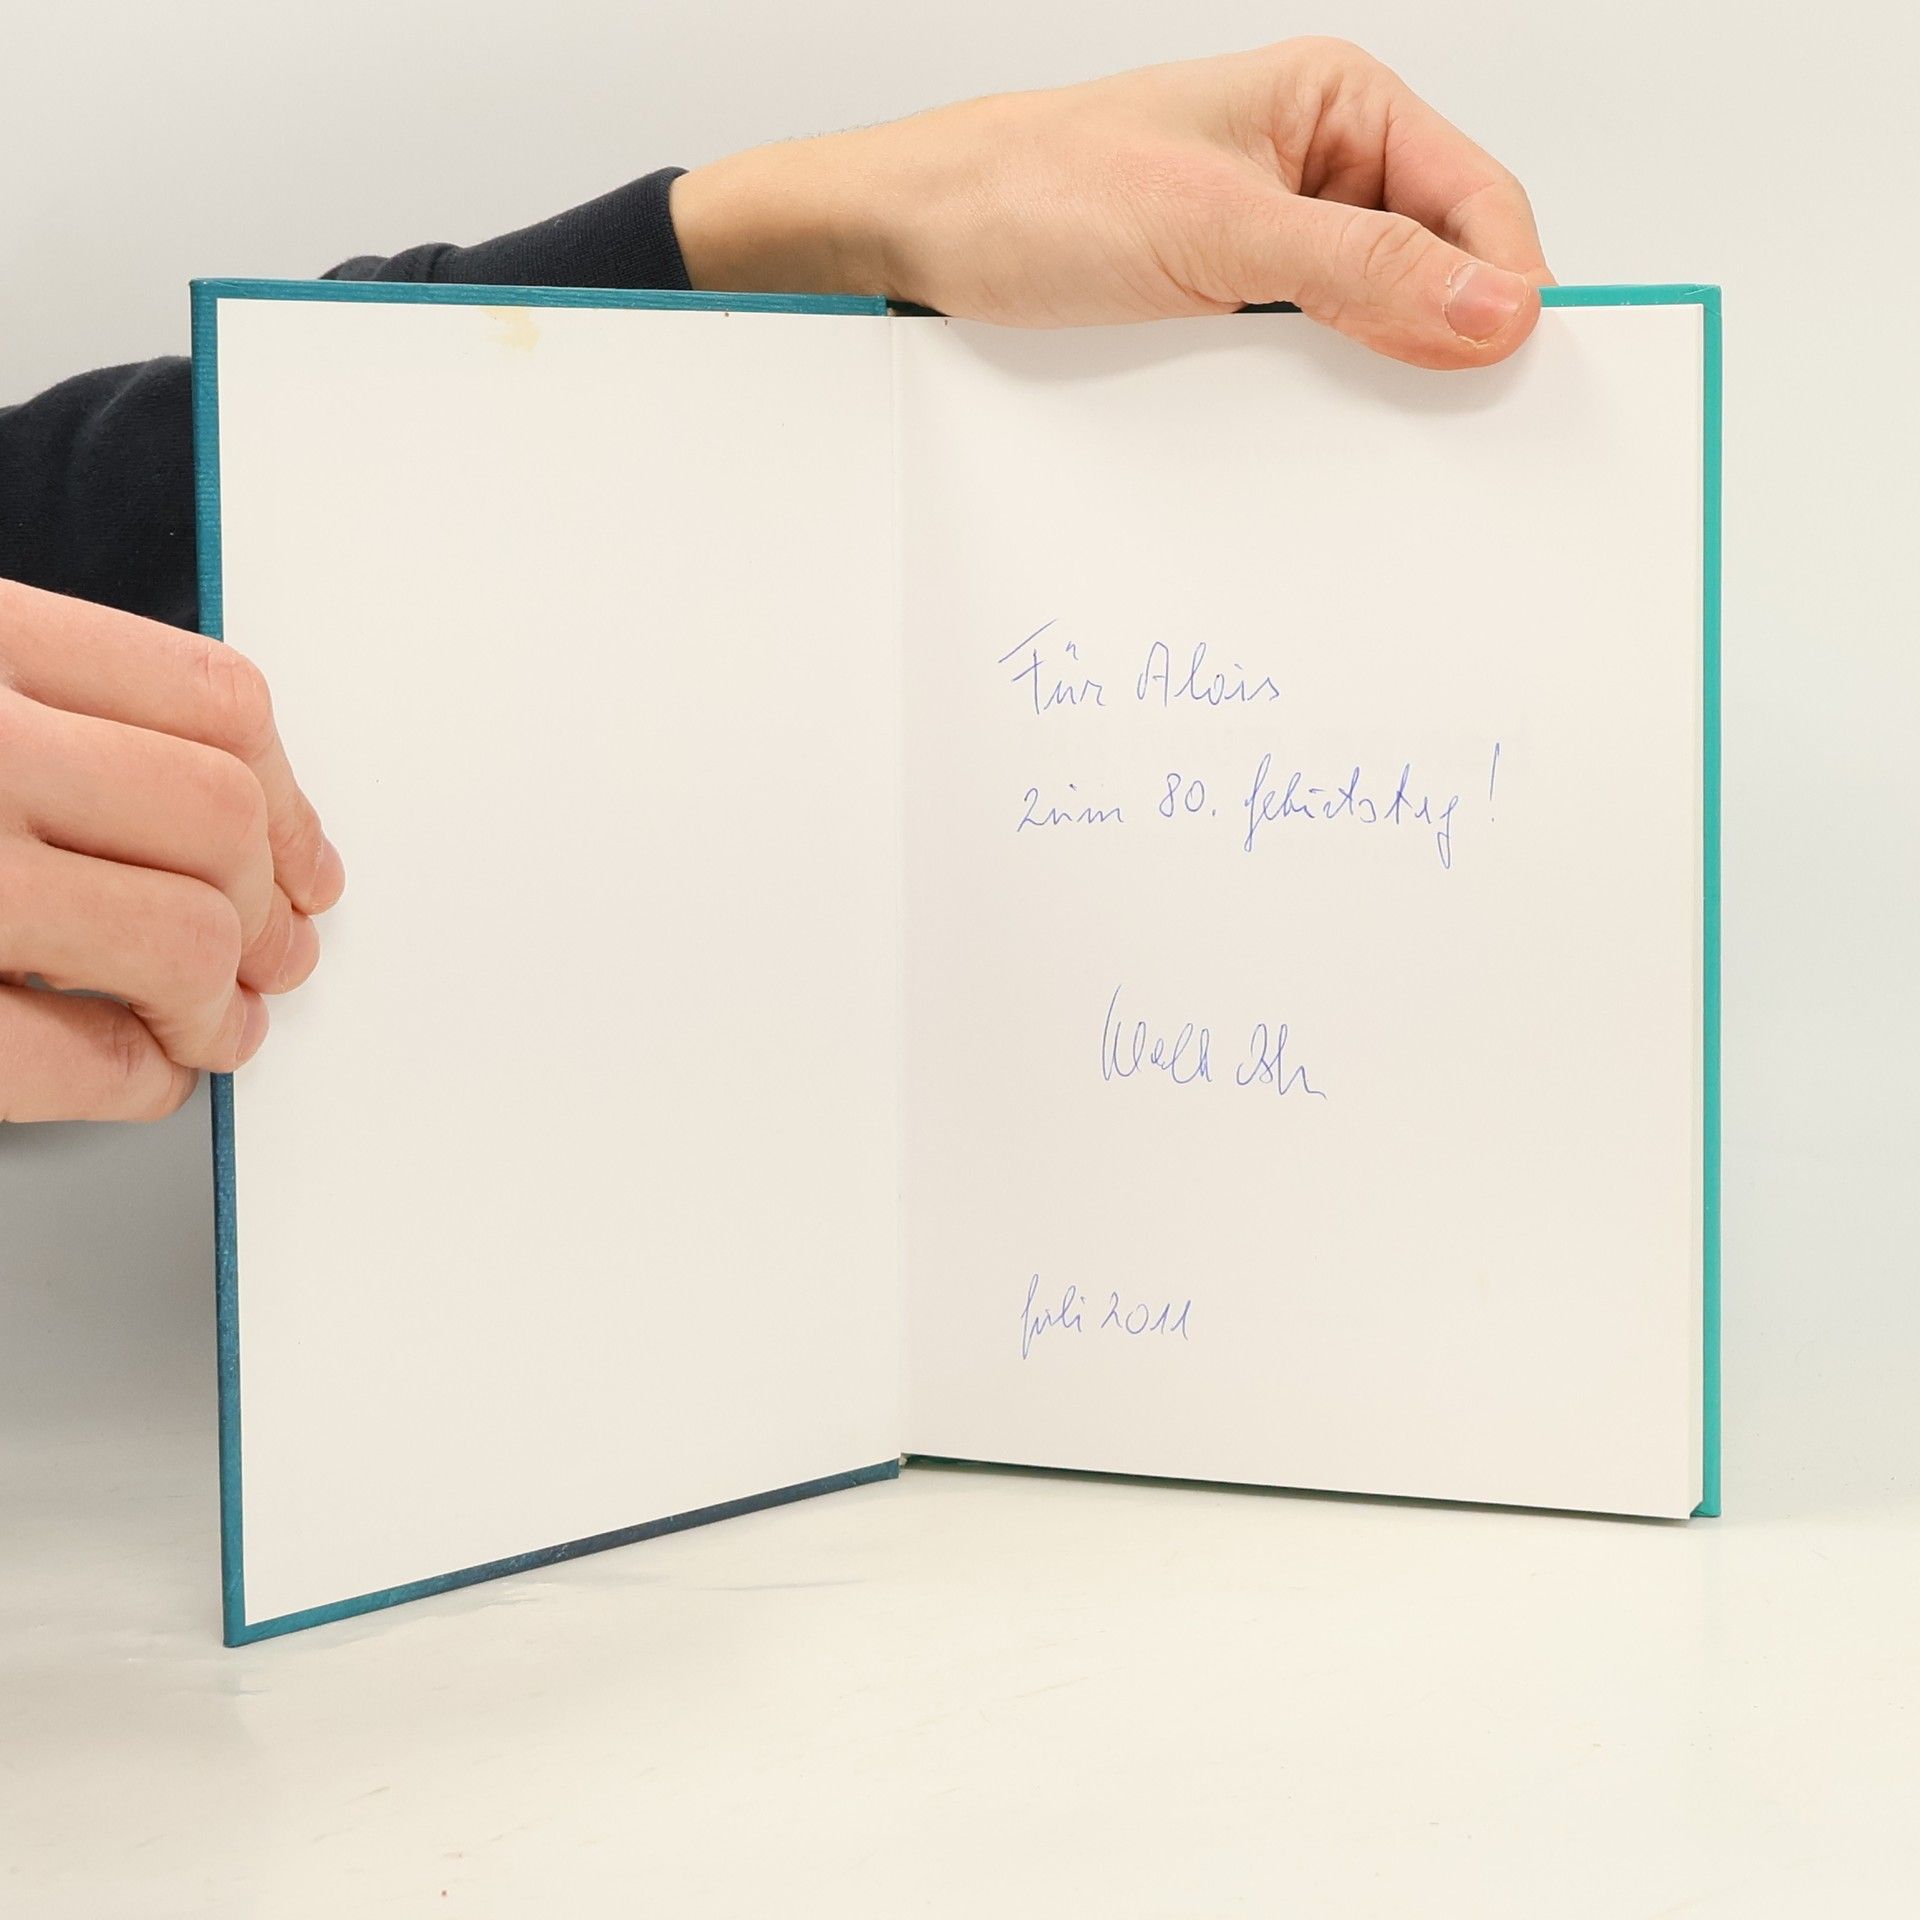 Für Alois
zum 80. Geburtstag!
Juli 2011